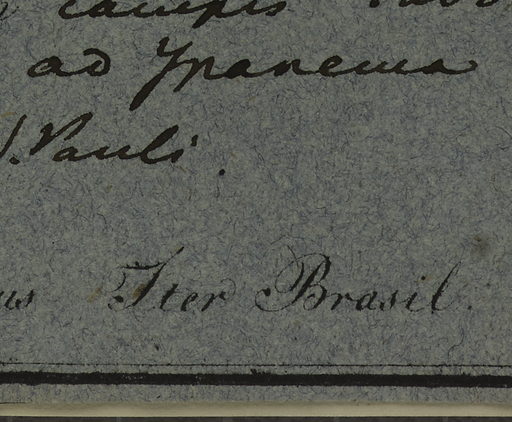 campis
ad Ypanema
S. Pauli.
us Iter Brasil.